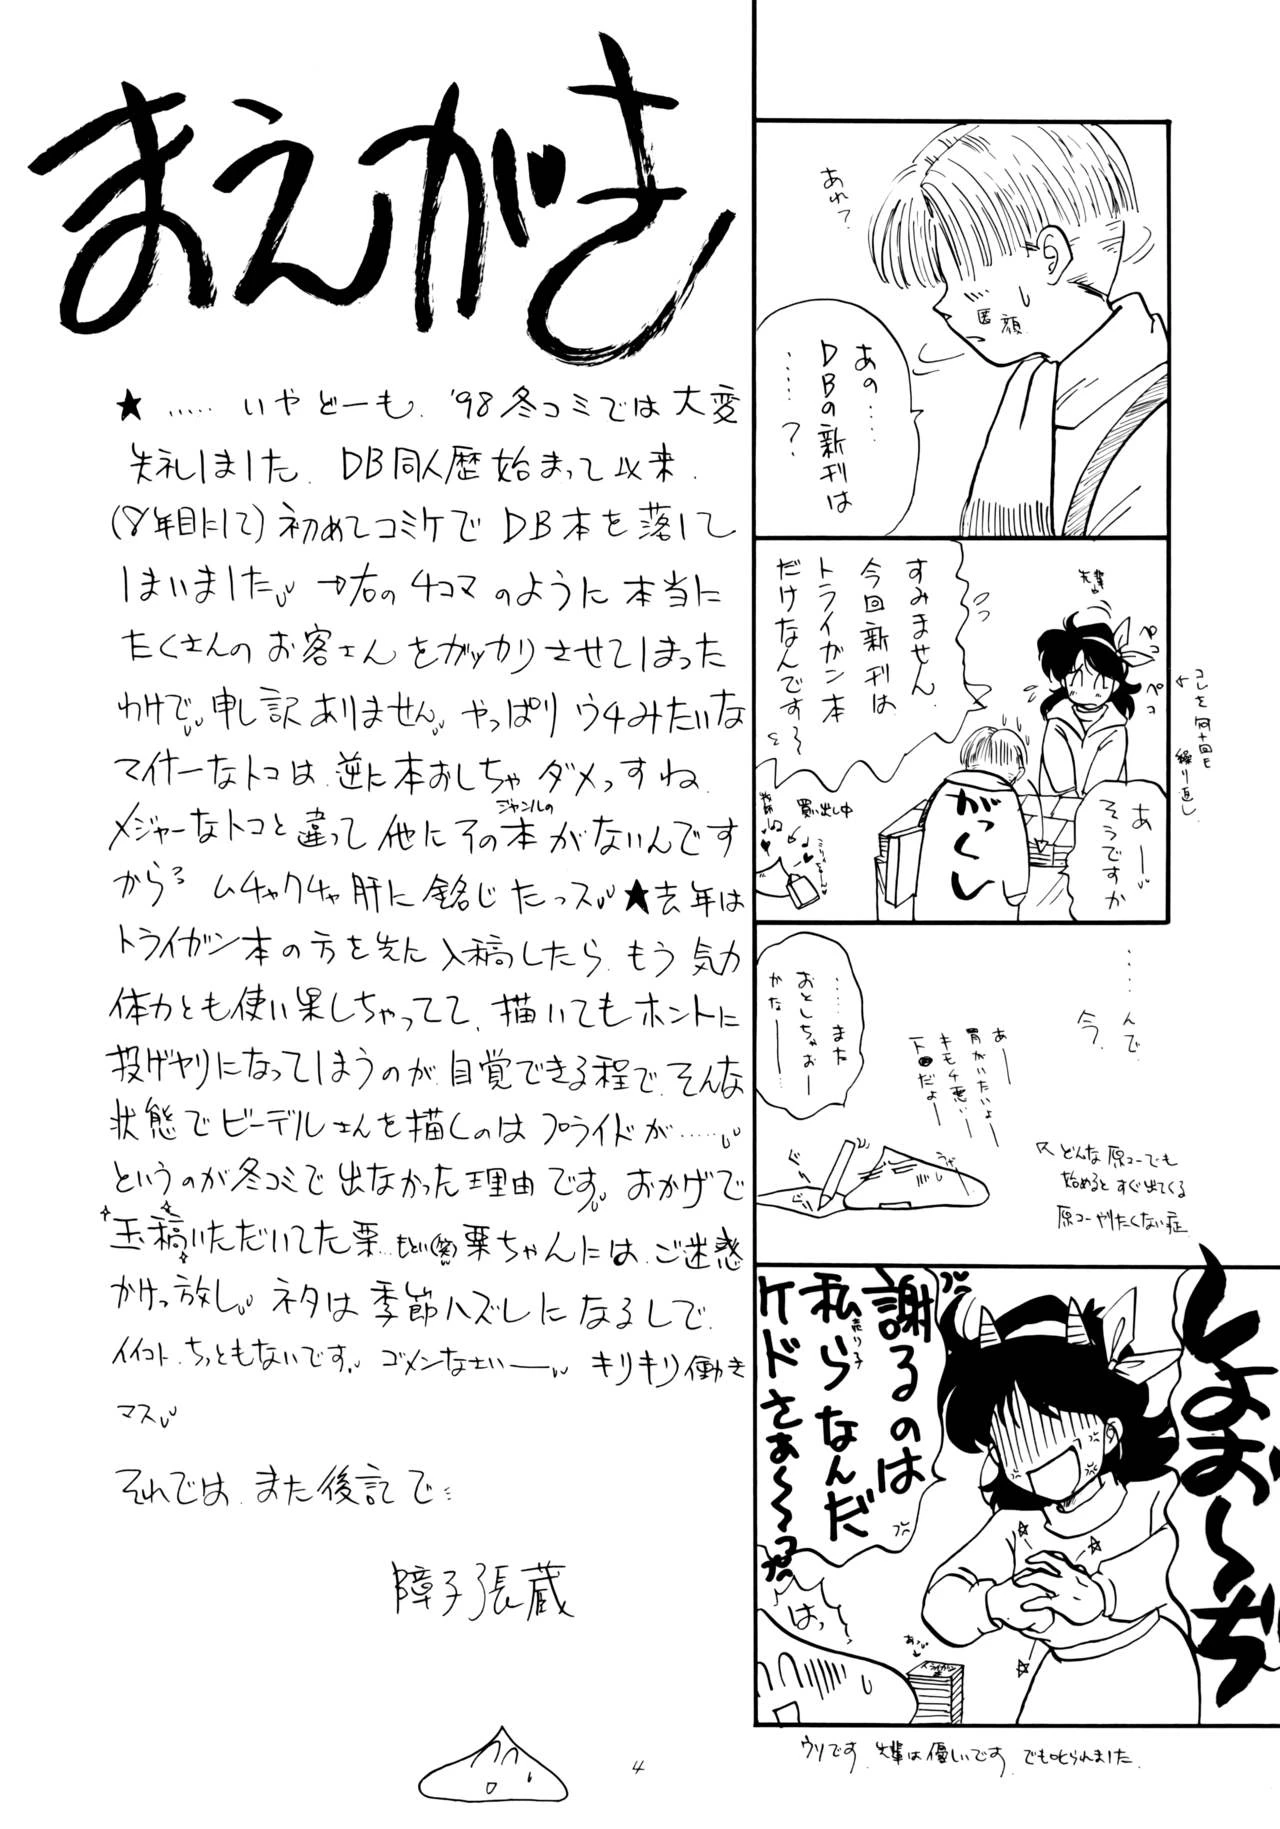 まえがき
★……いやどーも、'98冬コミでは大変
失礼しました、DB同人歴始まって以来、
(8年目にして)初めてコミケでDB本を落して
しまいました →右の4コマのように本当に
たくさんのお客さんをガッカリさせてしまった
わけで、申し訳ありません、やっぱりウチみたいな
マイナーなトコは逆に本おしちゃダメっすね、
メジャーなトコと違って他にそのジャンルの本がないんです
から ムチャクチャ肝に銘じたっス ★去年は
トライガン本の方を先に入稿したら、もう気力
体力とも使い果しちゃってて、描いてもホントに
投げヤリになってしまうのが自覚できる程で、そんな
状態でビーデルさんを描くのはプライドが……
というのが冬コミで出なかった理由です、おかげで
玉稿いただいてた栗…もとい(笑)栗ちゃんには、ご迷惑
かけっ放し、ネタは季節ハズレになるしで、
イイコト、ちっともないです、ゴメンなさいー キリキリ働き
マス
それでは、また後記で…
障子張蔵
4
あれ?
匿顔
あの……
DBの新刊は
……?
すみません
今回新刊は
トライガン本
だけなんです〜
先輩
ペコ
ペコ
コレを何十回も
繰り返し
あー
そうですか
がっくし
買い出し中
……んで、
今、
あー
胃がいたいよー
キモチ悪い
だよー
……また
おとしちゃおー
かなー
ぐりぐり
どんな原コーでも
始めるとすぐ出てくる
原コーやりたくない症
しょお〜ぢ
謝るのは
私ら売り子なんだ
ケドさぁ〜〜っ
はっ
トライガン本
ウソです、先輩は優しいです、でも叱られました、